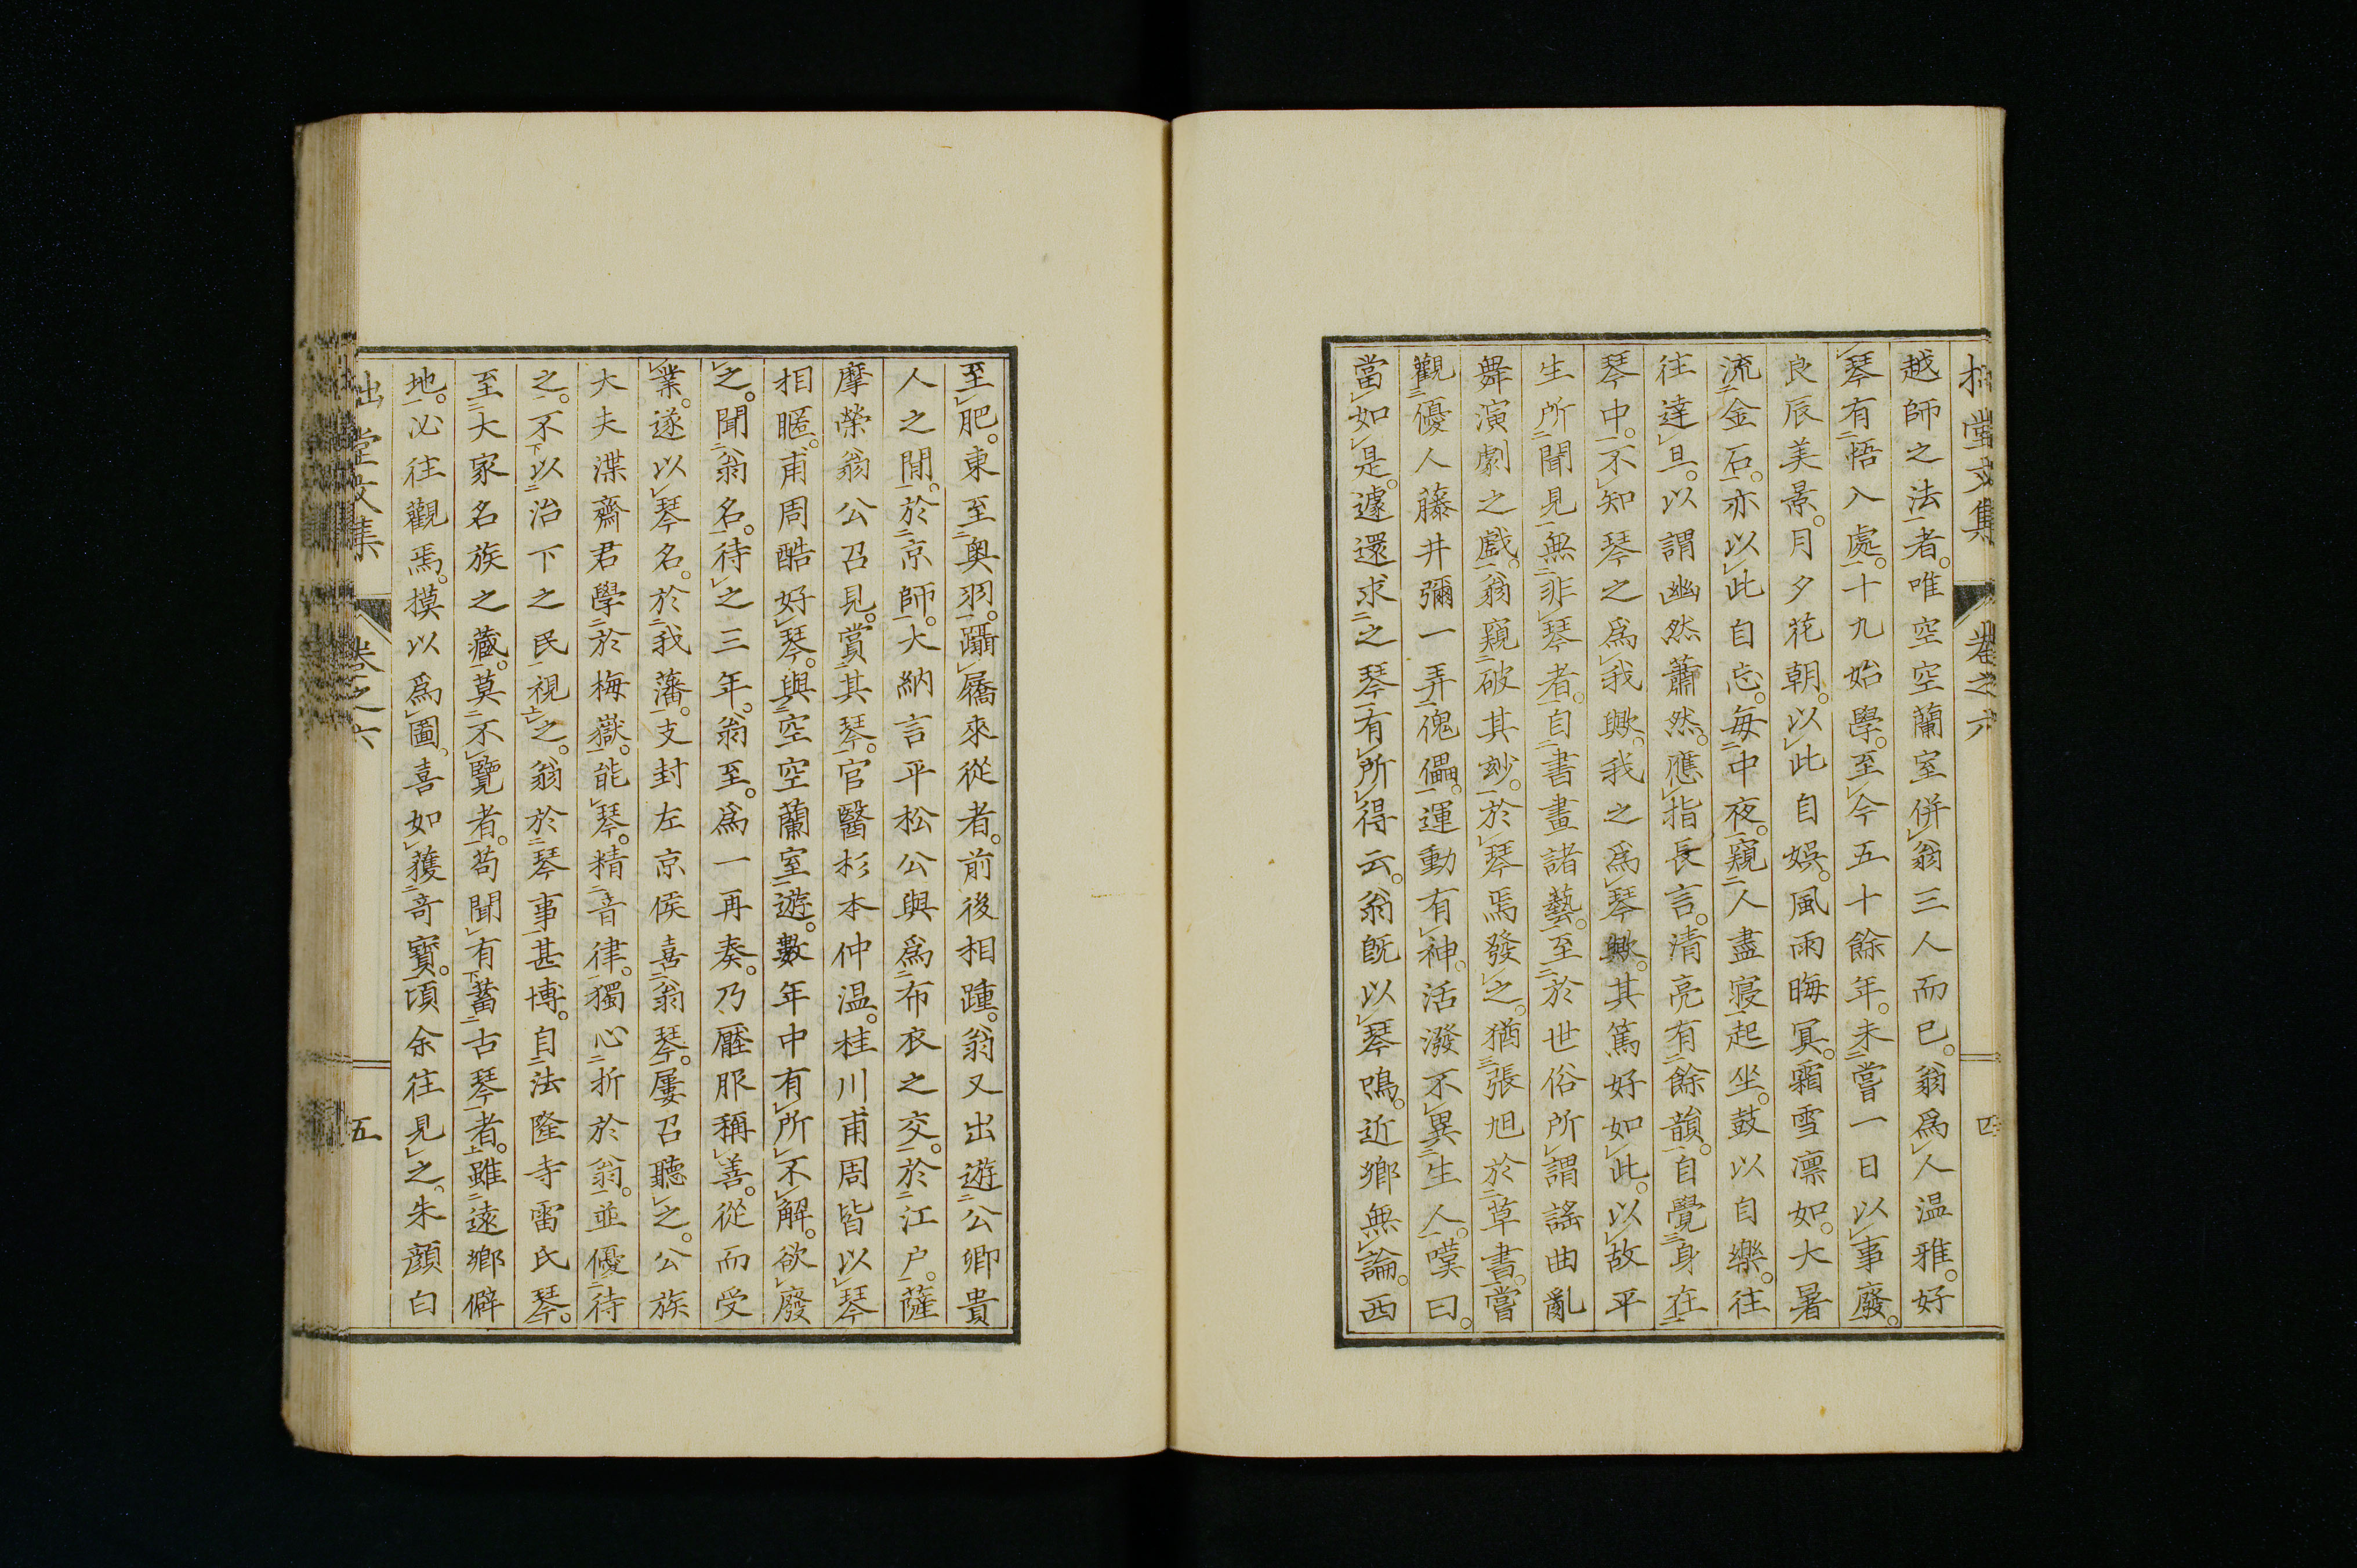 拙堂文集 卷之六 四
越師之法者。唯空空蘭室併翁三人而已。翁爲人温雅。好
琴有悟入處。十九始學。至今五十餘年。未嘗一日以事廢。
良辰美景。月夕花朝。以此自娛。風雨晦冥。霜雪凛如。大暑
流金石。亦以此自忘。每中夜。窺人盡寢起坐。鼓以自樂。往
往達旦。以謂幽然蕭然。應指長言。清亮有餘韻。自覺身在
琴中。不知琴之爲我歟。我之爲琴歟。其篤好如此。以故平
生所聞見無非琴者。自書畫諸藝。至於世俗所謂謠曲亂
舞演劇之戲。翁窺破其玅。於琴焉發之。猶張旭於草書。嘗
觀優人藤井彌一弄傀儡。運動有神。活潑不異生人。嘆曰。
當如是。遽還求之琴有所得云。翁既以琴鳴。近鄉無論。西
至肥。東至奥羽。躡屩來從者。前後相踵。翁又出遊公卿貴
人之間。於京師。大納言平松公與爲布衣之交。於江户。薩
摩榮翁公召見。賞其琴。官醫杉本仲温。桂川甫周皆以琴
相暱。甫周酷好琴。與空空蘭室遊。數年中有所不解。欲廢
之。聞翁名。待之三年。翁至。爲一再奏。乃壓服稱善。從而受
業。遂以琴名。於我藩。支封左京侯喜翁琴。屢召聽之。公族
大夫渫齋君學於梅嶽。能琴。精音律。獨心折於翁。並優待
之。不以治下之民視之。翁於琴事甚博。自法隆寺雷氏琴。
至大家名族之藏。莫不覽者。苟聞有蓄古琴者。雖遠鄉僻
地。必往觀焉。摸以爲圖。喜如獲奇寶。頃余往見之。朱顔白
拙堂文集 卷之六 五